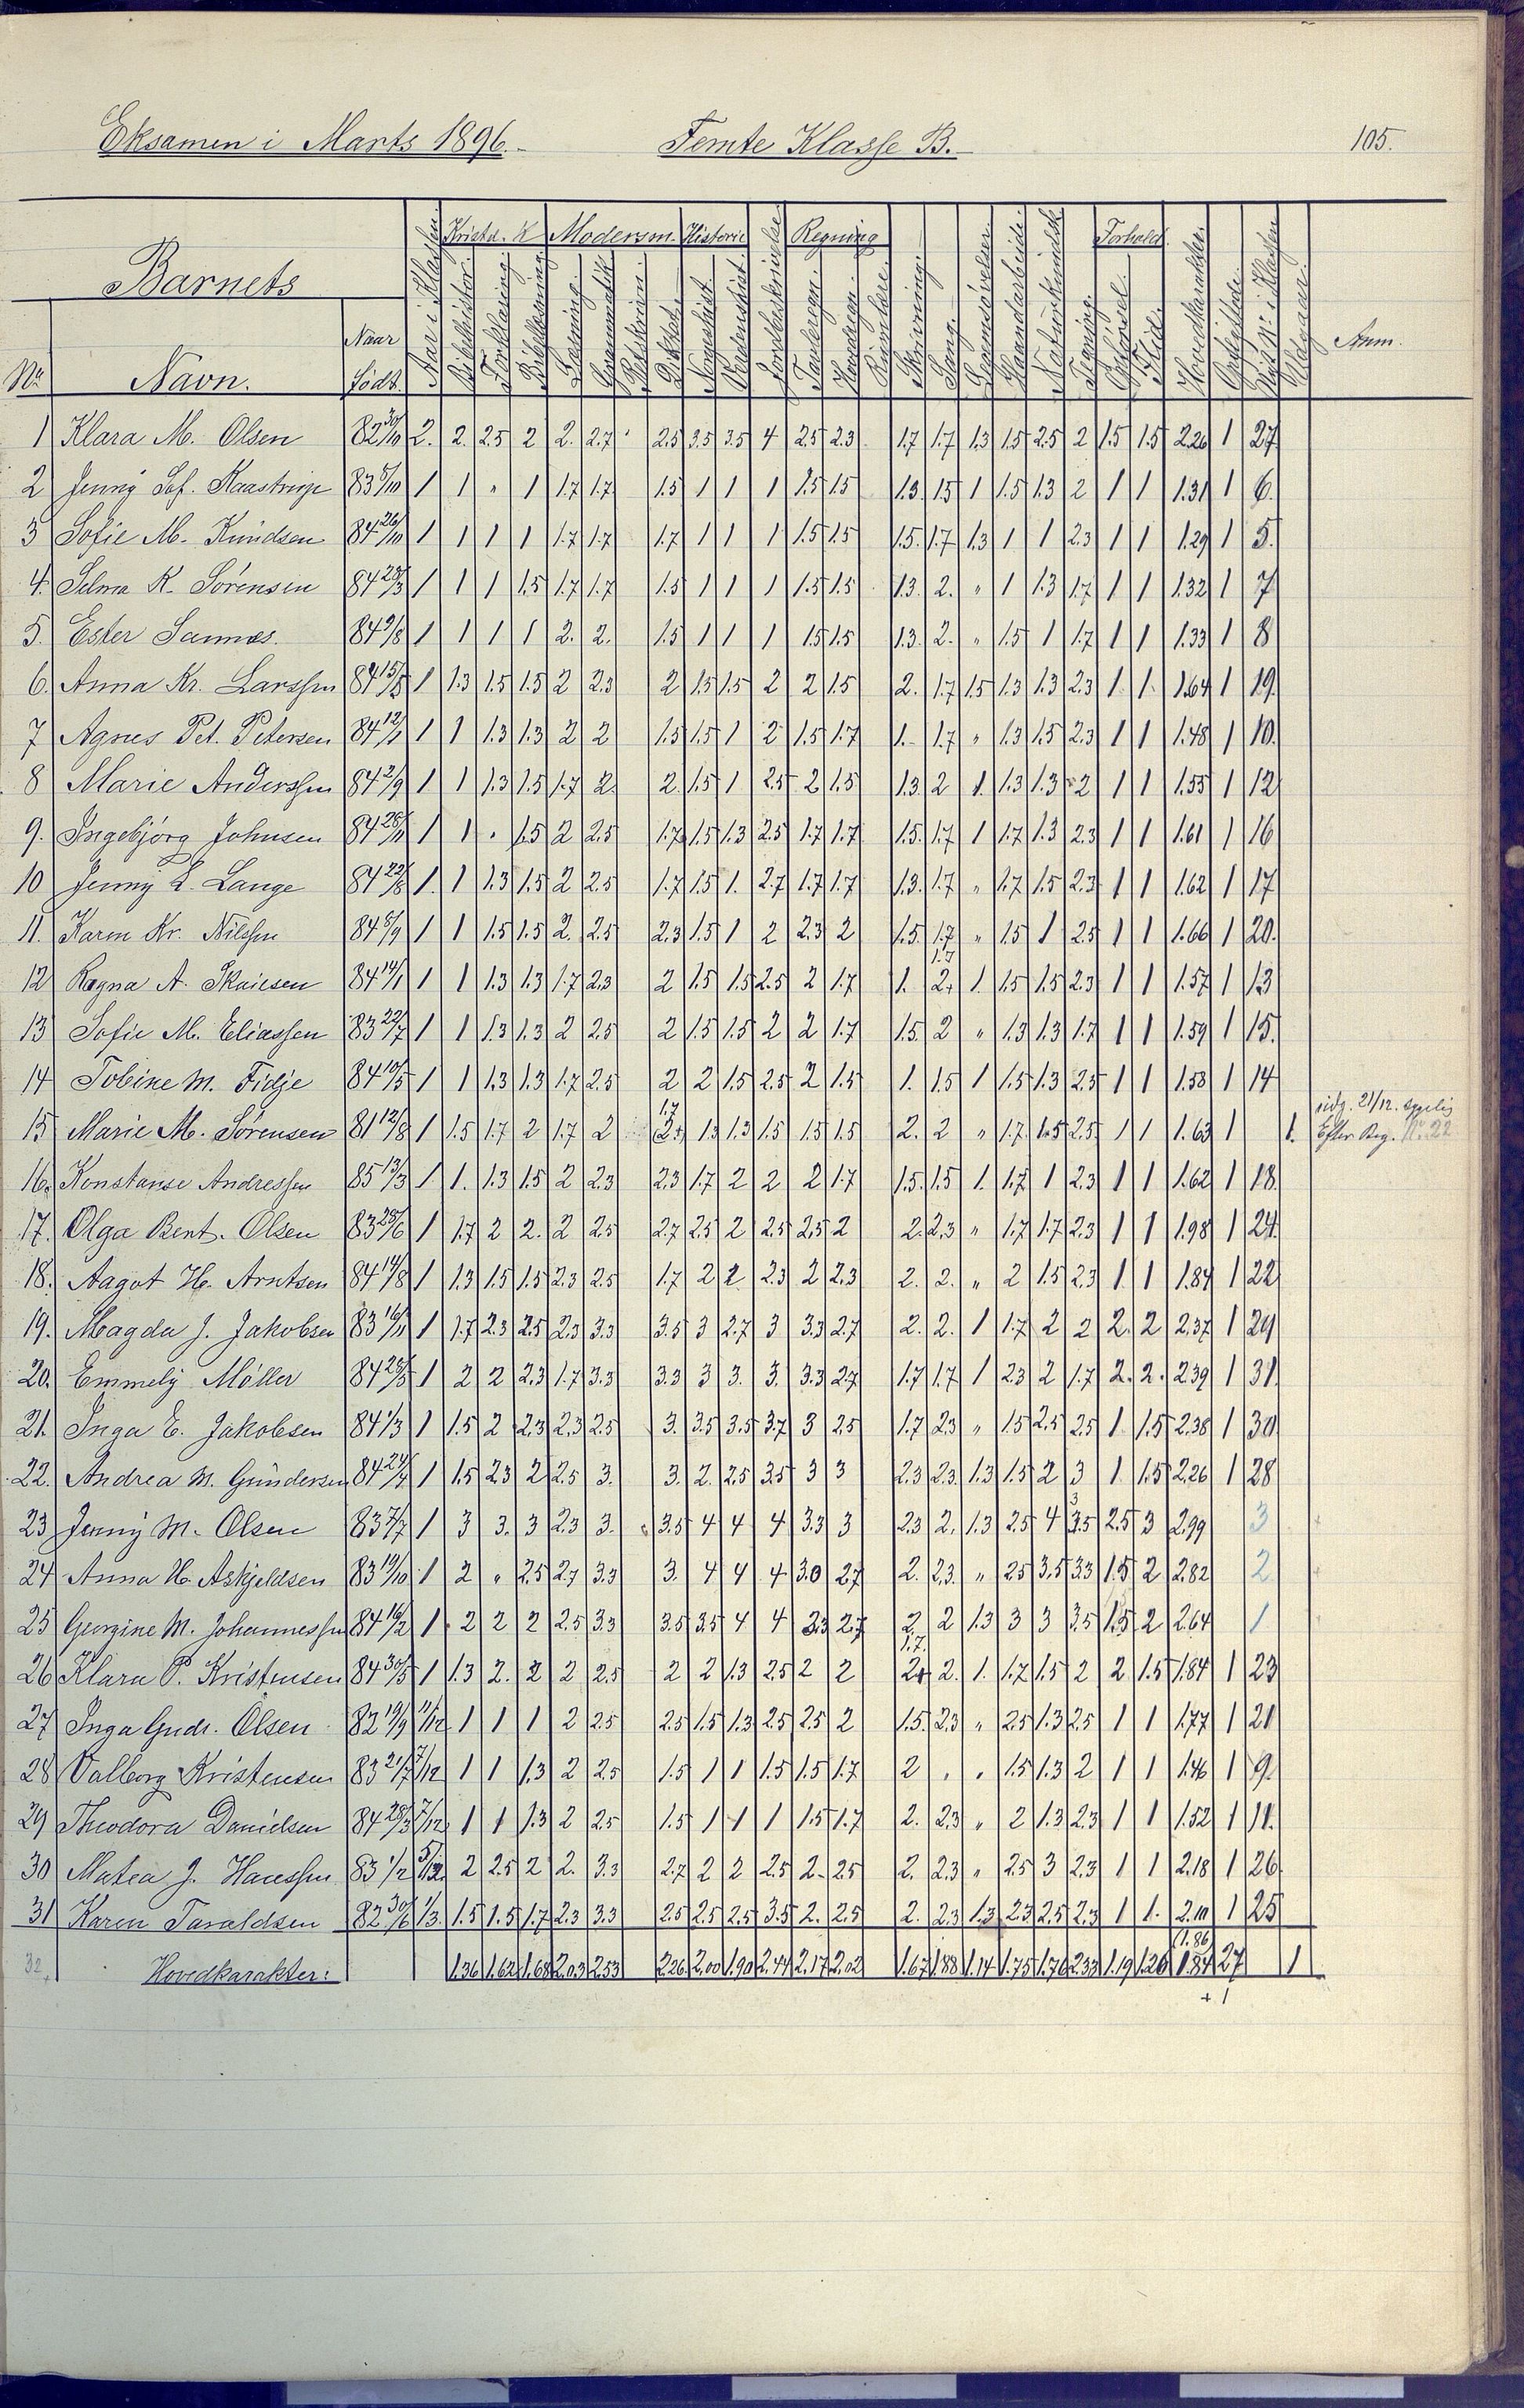 Eksamen i Marts 1896. Femte Klasse B. 105.
Kristd. K Modersm. Historie Regning Forhold
Barnets
No Navn. Naar Født. Aar i Klassen. Bibelhistor. Forklaring. Bibellæsning. Læsning. Grammatik Retskrivn. Diktat. Norgeshist. Verdenshist. Jordbeskrivelse Tavleregn. Hovedregn. Skrivning. Sang. Legemsøvelser. Haandarbeide. Naturkundsk. Tegning. Opførsel. Flid. Hovedkarakter. Opflyttede. Udgaar Anm.
1 Klara M. Olsen 82 30/10 2. 2. 2.5 2 2. 2.7 2.5 3.5 3.5 4 2.5 2.3 1.7 1.7 1.3 1.5 2.5 2 1.5 1.5 2.26 1 27
2 Jenny Sof. Kaastrup 83 5/10 1 1 " 1 1.7 1.7 1.5 1 1 1 1.5 1.5 1.3 1.5 1 1.5 1.3 2 1 1 1.31 1 6.
3 Sofie M. Knudsen 84 26/10 1 1 1 1 1.7 1.7 1.7 1 1 1 1.5 1.5 1.5. 1.7 1.3 1 1 2.3 1 1 1.29 1 5.
4. Selma K. Sörensen 84 28/3 1 1 1 1.5 1.7 1.7 1.5 1 1 1 1.5 1.5 1.3. 2. " 1 1.3 1.7 1 1 1.32 1 7
5. Ester Sannæs. 84 9/8 1 1 1 1 2. 2. 1.5 1 1 1 1.5 1.5 1.3. 2. " 1.5 1 1.7 1 1 1.33 1 8
6. Anna Kr. Larssen 84 15/5 1 1.3 1.5 1.5 2 2.3 2 1.5 1.5 2 2 1.5 2. 1.7 1.5 1.3 1.3 2.3 1 1. 1.64 1 19.
7 Agnes Pet. Petersen 84 12/1 1 1 1.3 1.3 2 2 1.5 1.5 1 2 1.5 1.7 1. 1.7 " 1.3 1.5 2.3 1 1 1.48 1 10.
8 Marie Anderssen 84 2/9 1 1 1.3 1.5 1.7 2. 2. 1.5 1 2.5 2 1.5 1.3 2 1. 1.3 1.3 2 1 1 1.55 1 12
9. Ingebjörg Johnsen 84 28/11 1 1 " 1.5 2 2.5 1.7 1.5 1.3 2.5 1.7 1.7 1.5. 1.7 1 1.7 1.3 2.3 1 1 1.61 1 16
10 Jenny L. Lange 84 22/8 1. 1 1.3 1.5 2 2.5 1.7 1.5 1. 2.7 1.7 1.7 1.3. 1.7 " 1.7 1.5 2.3 1 1 1.62 1 17
11. Karen Kr. Nilssen 84 5/9 1 1 1.5 1.5 2. 2.5 2.3 1.5 1 2 2.3 2 1.5. 1.7 " 1.5 1 2.5 1 1 1.66 1 20.
1.7
12 Ragna A. Skaiesen 84 14/1 1 1 1.3 1.3 1.7 2.3 2 1.5 1.5 2.5 2 1.7 1. 2+ 1. 1.5 1.5 2.3 1 1 1.57 1 13
13 Sofie M. Eliassen 83 22/7 1 1 1.3 1.3 2 2.5 2 1.5 1.5 2 2 1.7 1.5. 2 " 1.3 1.3 1.7 1 1 1.59 1 15.
14 Tobine M. Fidje 84 10/5 1 1 1.3 1.3 1.7 2.5 2 2 1.5 2.5 2 1.5 1. 1.5 1 1.5 1.3 2.5 1 1 1.58 1 14
1.7
15 Marie M. Sörensen 81 12/8 1 1.5 1.7 2 1.7 2 2+ 1.3 1.3 1.5 1.5 1.5 2. 2 " 1.7 1.5 2.5 1 1 1.63 1 1. 21/12. Efter Beg. No 22
16. Konstanse Andressen 85 13/3 1 1. 1.3 1.5 2 2.3 2.3 1.7 2 2 2 1.7 1.5. 1.5 1. 1.7 1 2.3 1 1 1.62 1 18.
17. Olga Bent. Olsen 83 25/6 1 1.7 2 2. 2 2.5 2.7 2.5 2 2.5 2.5 2 2. 2.3 " 1.7 1.7 2.3 1 1 1.98 1 24.
18. Aagot H. Arntsen 84 14/8 1 1.3 1.5 1.5 2.3 2.5 1.7 2 2 2.3 2 2.3 2. 2. " 2 1.5 2.3 1 1 1.84 1 22
19. Magda J. Jakobsen 83 16/11 1 1.7 2.3 2.5 2.3 3.3 3.5 3 2.7 3 3.3 2.7 2. 2. 1 1.7 2 2 2. 2 2.37 1 29
20. Emmely Möller 84 25/5 1 2 2 2.3 1.7 3.3 3.3 3 3. 3. 3.3 2.7 1.7 1.7 1 2.3 2 1.7 2. 2. 2.39 1 31.
21. Inga E. Jakobsen 84 1/3 1 1.5 2 2.3 2.3 2.5 3. 3.5 3.5 3.7 3 2.5 1.7 2.3 " 1.5 2.5 2.5 1 1.5 2.38 1 30.
22. Andrea M. Gundersen 84 24/4 1 1.5 2.3 2 2.5 3. 3. 2. 2.5 3.5 3 3 2.3 2.3. 1.3 1.5 2 3 1 1.5 2.26 1 28
3
23 Jenny M. Olsen 83 7/7 1 3 3. 3 2.3 3. 3.5 4 4 4 3.3 3 2.3 2. 1.3 2.5 4 3.5 2.5 3 2.99 3
24 Anna H. Askjeldsen 83 19/10 1 2 " 2.5 2.7 3.3 3. 4 4 4 3.0 2.7 2. 2.3. " 2.5 3.5 3.3 1.5 2 2.82 2
25 Georgine M. Johannessen 84 16/2 1 2 2 2 2.5 3.3 3.5 3.5 4 4 3.3 2.7 2. 2 1.3 3 3 3.5 1.5 2 2.64 1
1.7
26 Klara P. Kristensen 84 30/5 1 1.3 2. 2 2 2.5 2 2 1.3 2.5 2 2 2+ 2. 1. 1.7 1.5 2 2 1.5 1.84 1 23
27 Inga Gudr. Olsen 82 19/9 11/12 1 1 1 2 2.5 2.5 1.5 1.3 2.5 2.5 2 1.5. 2.3 " 2.5 1.3 2.5 1 1 1.77 1 21
28 Valborg Kristensen 83 21/7 7/12 1 1 1.3 2 2.5 1.5 1 1 1.5 1.5 1.7 2 " " 1.5 1.3 2 1 1 1.46 1 9.
29 Theodora Danielsen 84 28/3 7/12 1 1 1.3 2 2.5 1.5 1 1 1 1.5 1.7 2. 2.3 " 2 1.3 2.3 1 1 1.52 1 11.
30 Matea J. Hanssen 83 1/2 5/12 2 2.5 2 2. 3.3 2.7 2 2 2.5 2 2.5 2. 2.3 " 2.5 3 2.3 1 1 2.18 1 26.
31 Karen Taraldsen 82 30/6 1/3. 1.5 1.5 1.7 2.3 3.3 2.5 2.5 2.5 3.5 2. 2.5 2. 2.3 1.3 2.3 2.5 2.3 1 1. 2.10 1 25
(1.86
32 Hovedkarakter: 1.36 1.62 1.68 2.03 2.53 2.26 2.00 1.90 2.44 2.17 2.02 1.67 1.88 1.14 1.75 1.76 2.33 1.19 1.26 1.84 27 1
+ 1